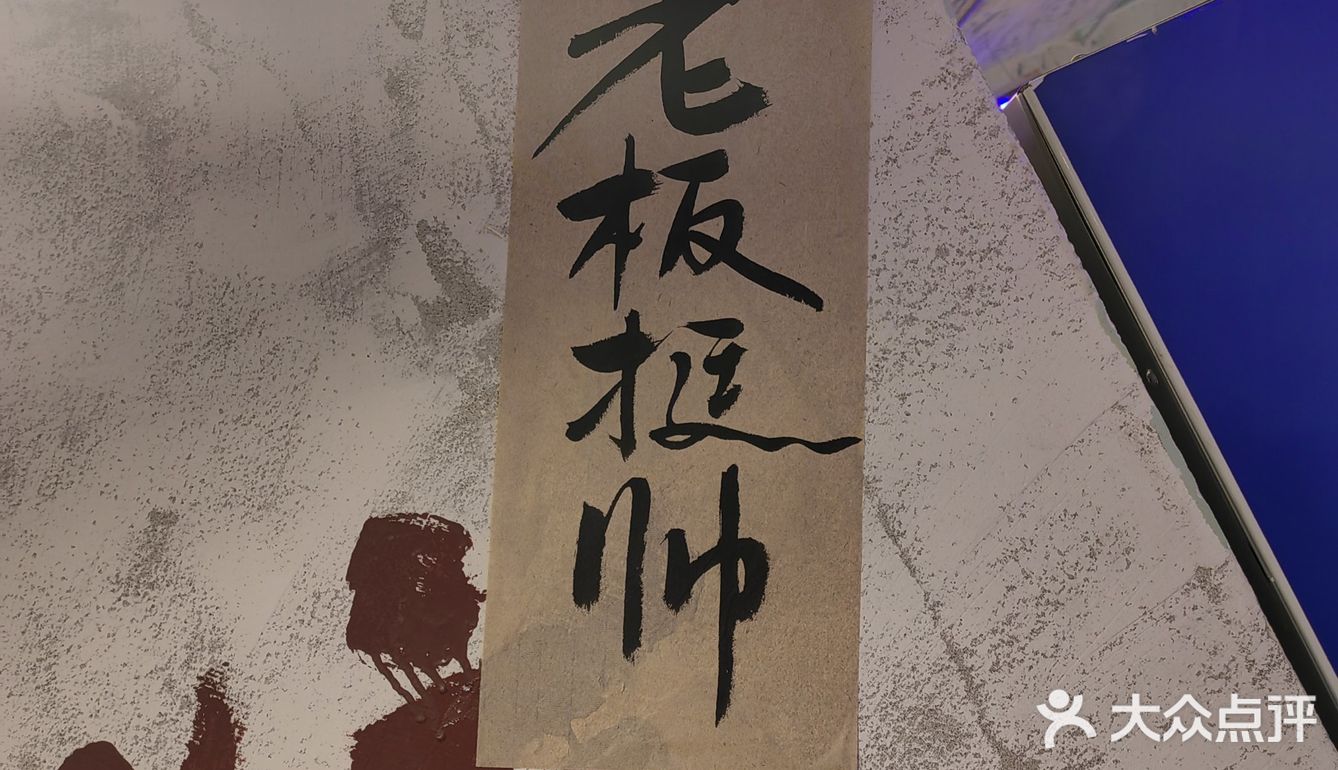 老板挺帅
大众点评